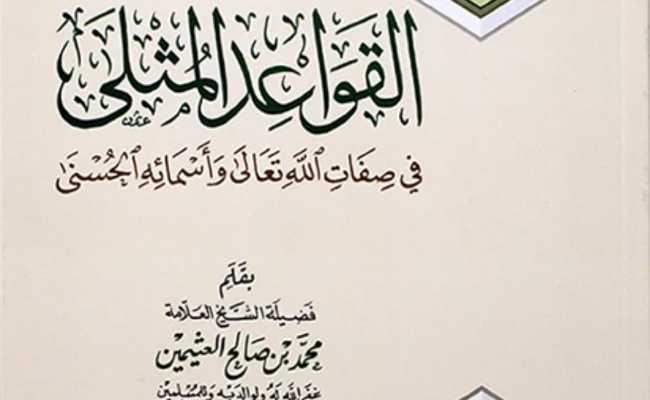 القَوَاعِدُ المُثْلَى
في صِفَاتِ اللَّهِ تَعَالَى وَأَسْمَائِهِ الحُسْنَى
بِقَلَم
فَضيلَة الشَّيْخ العَلَّامة
محمَّد بْن صَالح العثيمين
غفَر اللَّه لَهُ ولوالدَيْه وَللمُسْلِمين